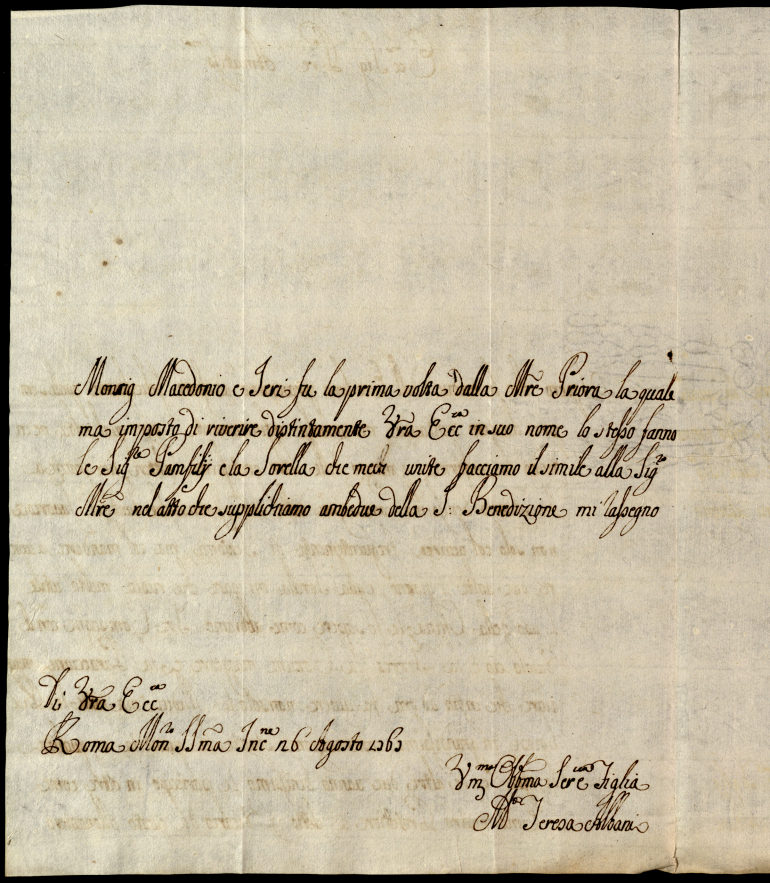 Monsig Macedonio e Ieri fu la prima volta dalla Mrē Priora la quale
ma imposto di riverire distintamente Vrā Eccᶻᵃ in suo nome lo stesso fanno
le Sigʳᵉ Pamfilij e la Sorella che meco unite facciamo il simile alla Sigʳᵃ
Mrē nel atto che supplichiamo ambedue della S: Benedizione mi rassegno
Di Vrā Eccᶻᵃ
Roma Monʳᵒ SSmā Incⁿᵉ 26 Agosto
Vmᵐᵃ Obbmā Figlia
Mᵃ Teresa Albani